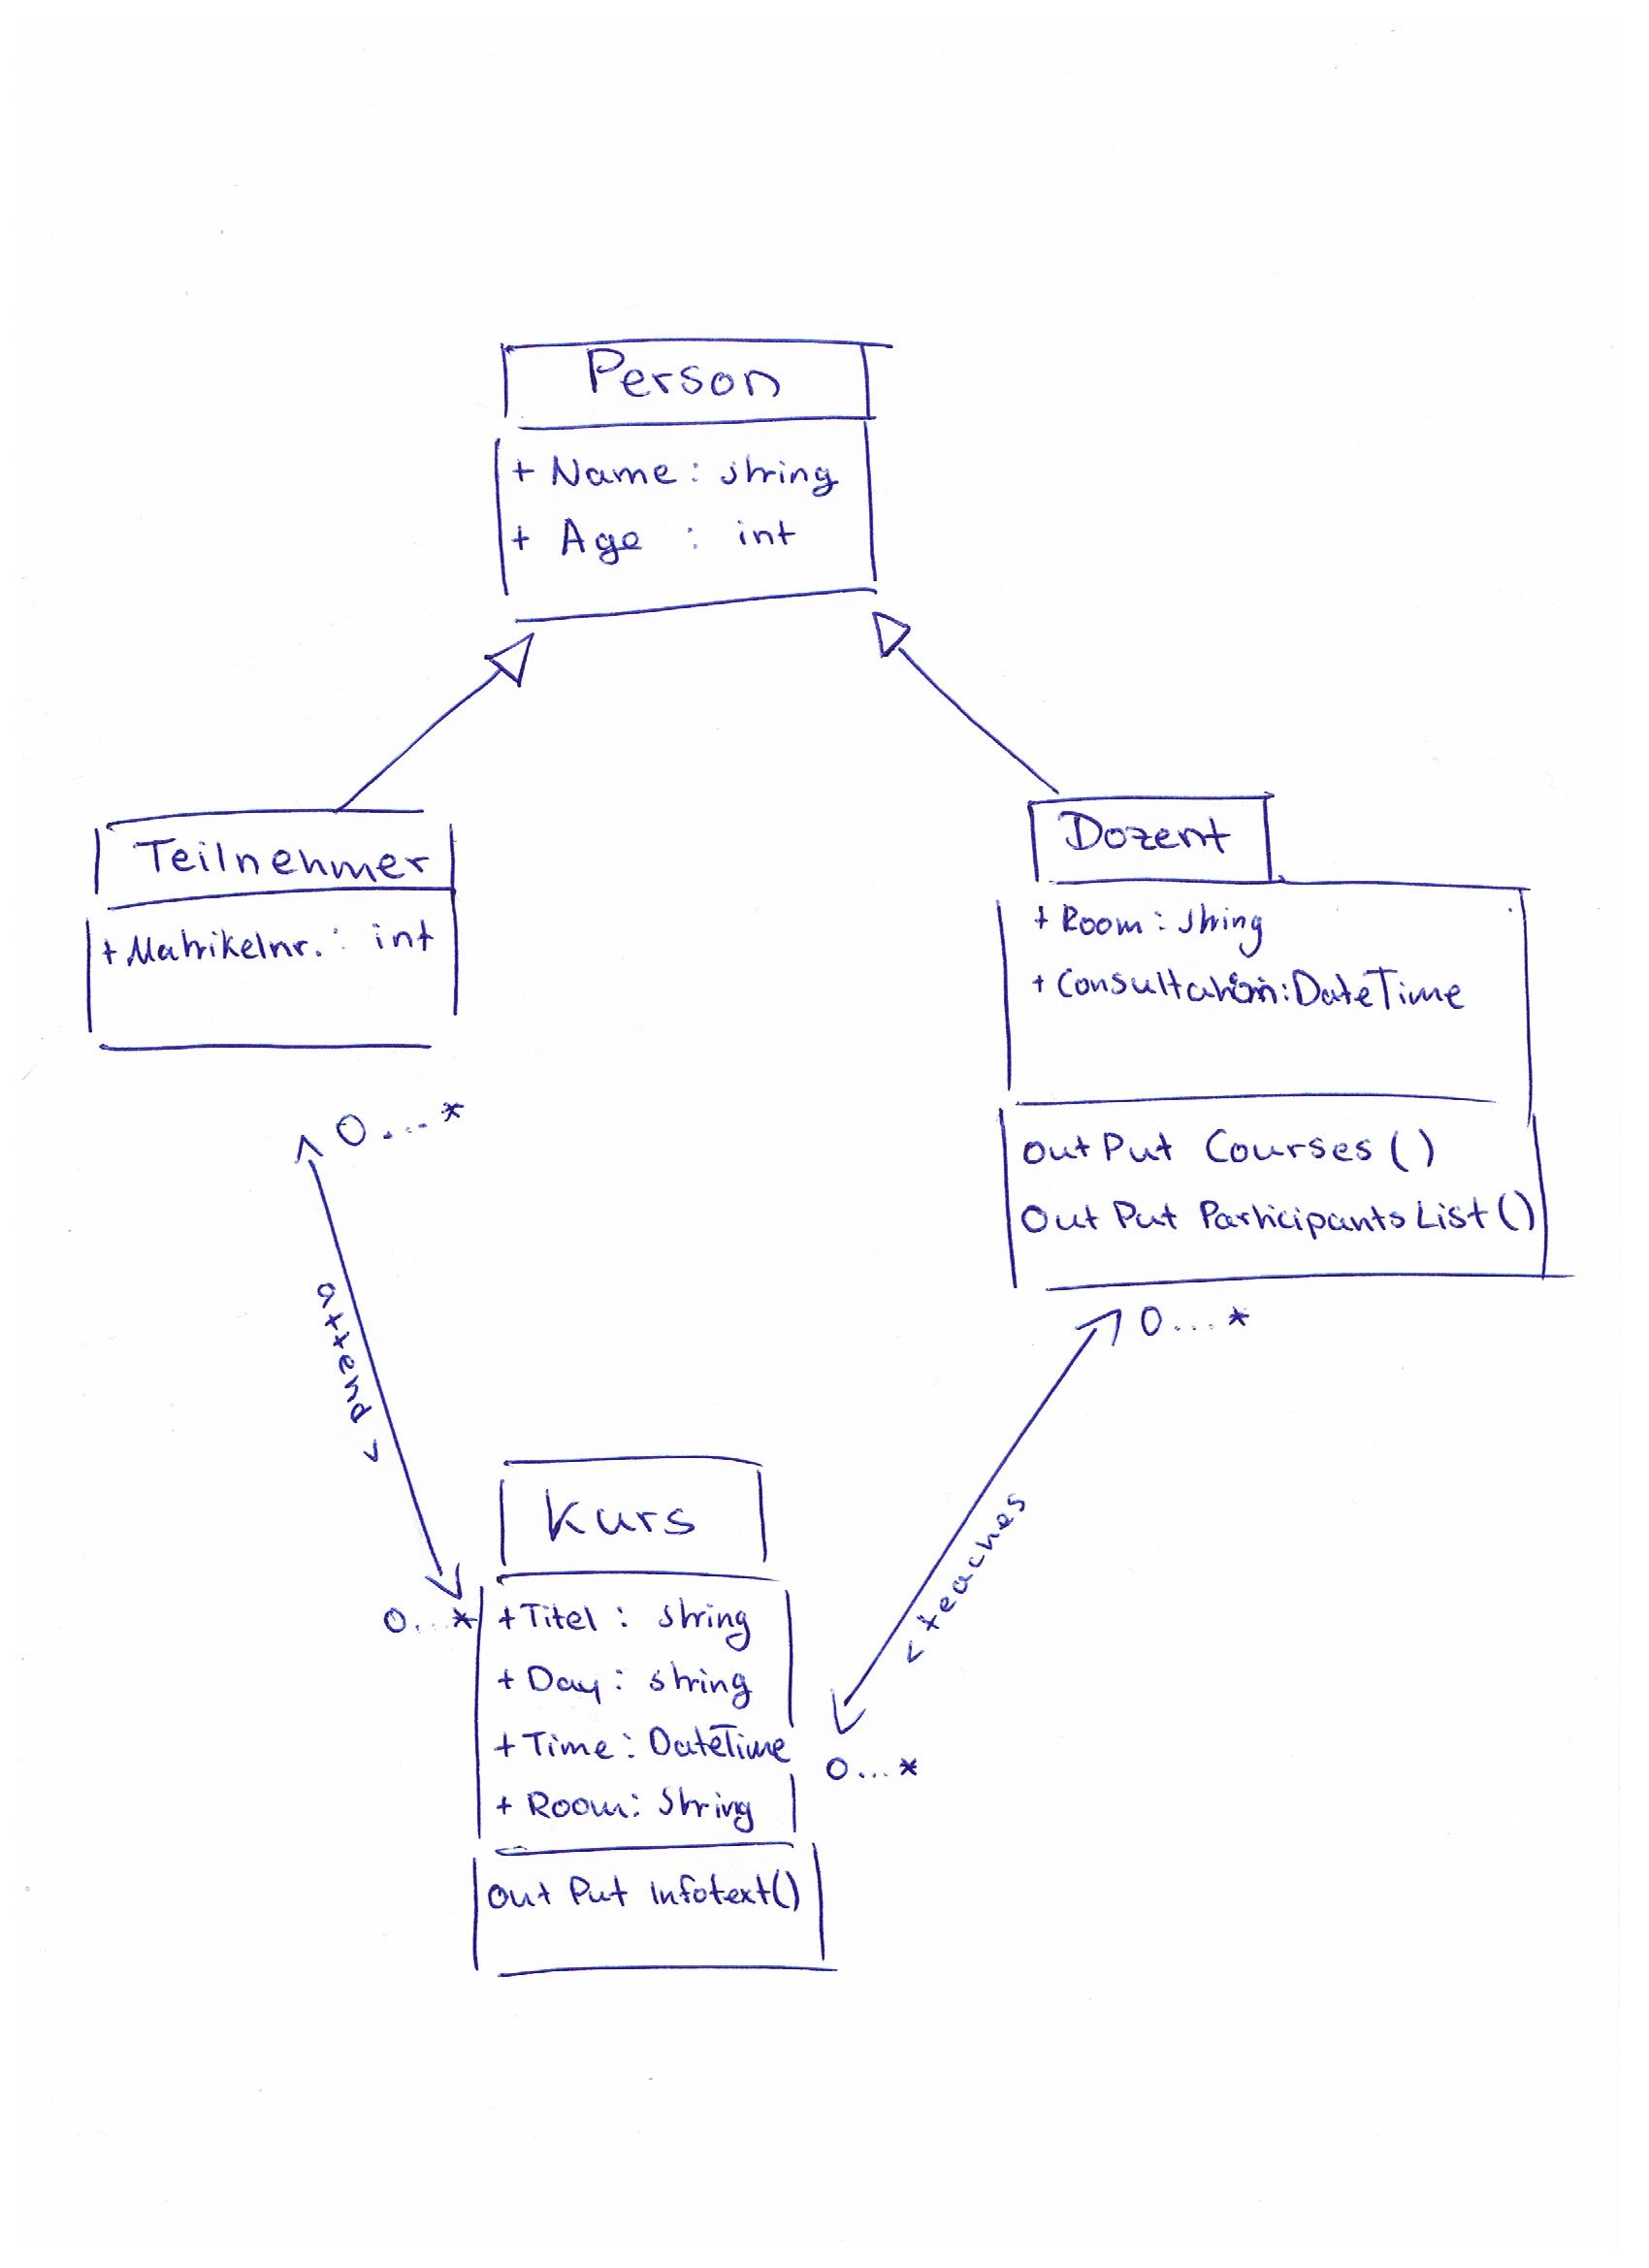 Person
+ Name : string
+ Age : int
Teilnehmer
+ Matrikelnr. : int
Dozent
+ Room : string
+ Consultation: DateTime
OutPut Courses ()
OutPut ParticipantsList ()
0....*
attend >
0...*
0...*
< teaches
0...*
Kurs
+ Titel : string
+ Day : string
+ Time : DateTime
+ Room: String
OutPut Infotext()